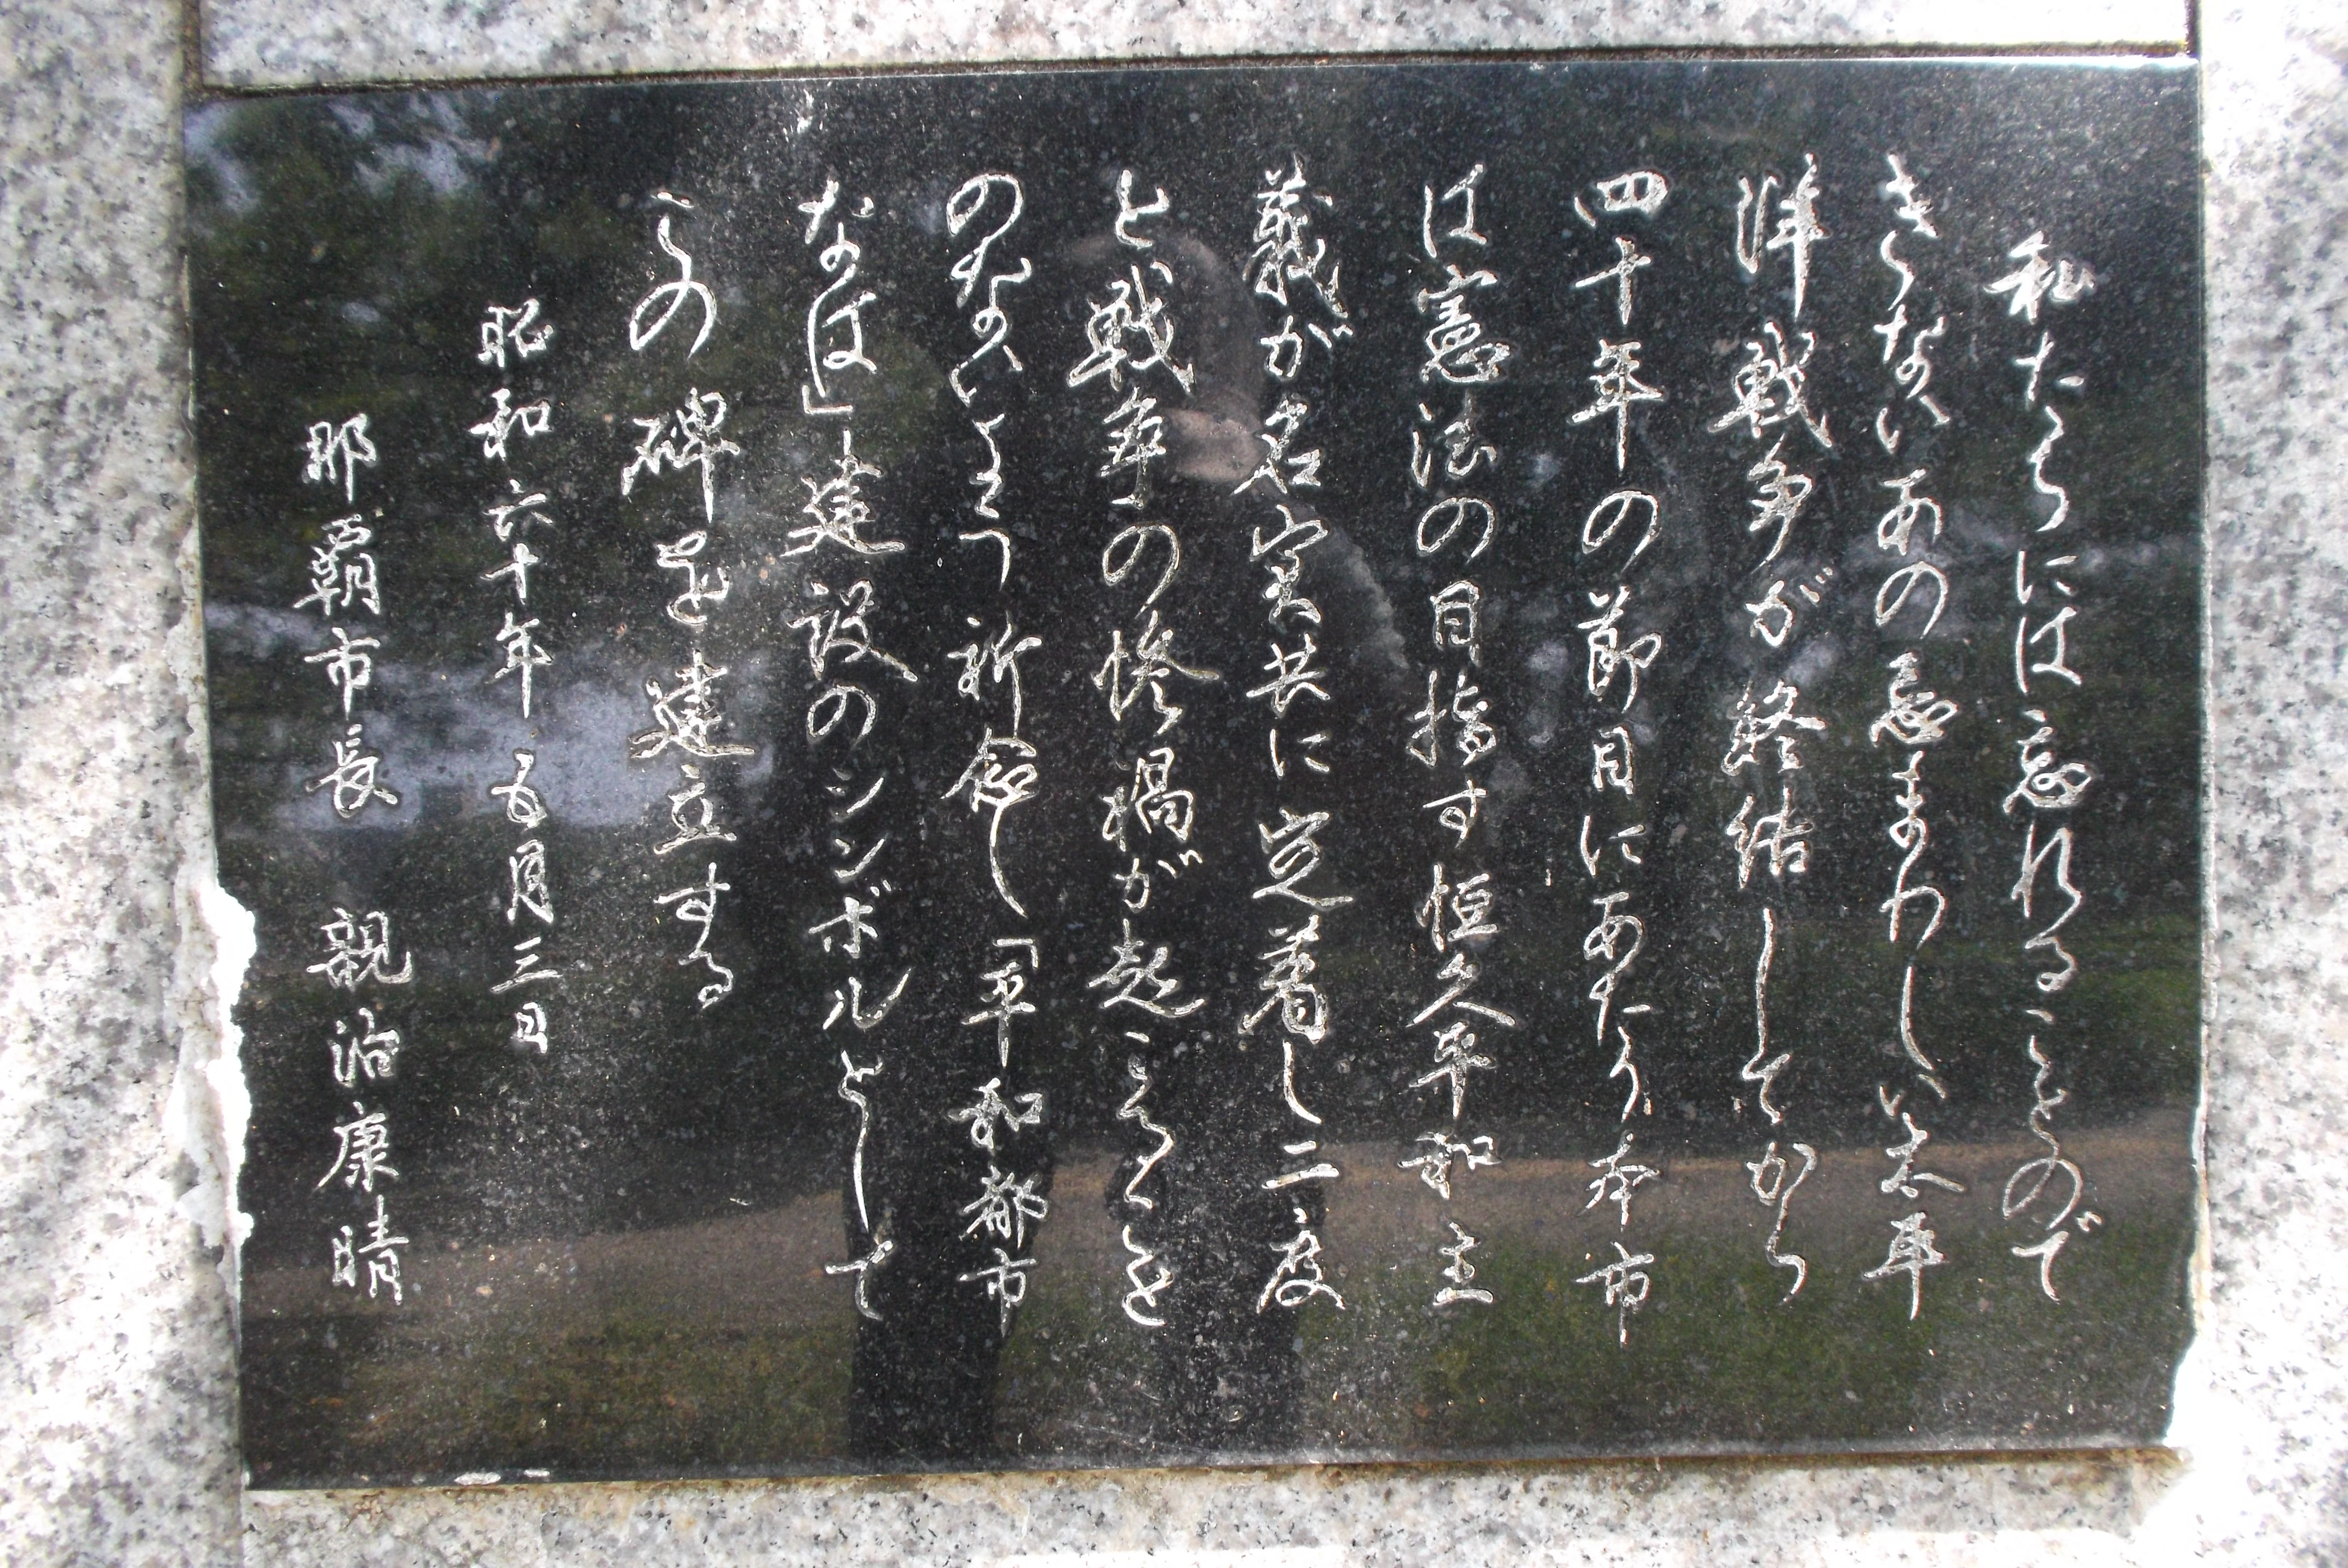 私たちには忘れることので
きないあの忌まわしい太平
洋戦争が終結してから
四十年の節目にあたり本市
は憲法の目指す恒久平和主
義が名実共に定着し二度
と戦争の惨禍が起こることを
のないよう祈念し「平和都市
なは」建設のシンボルとして
この碑を建立する
昭和六十年五月三日
那覇市長 親泊康晴